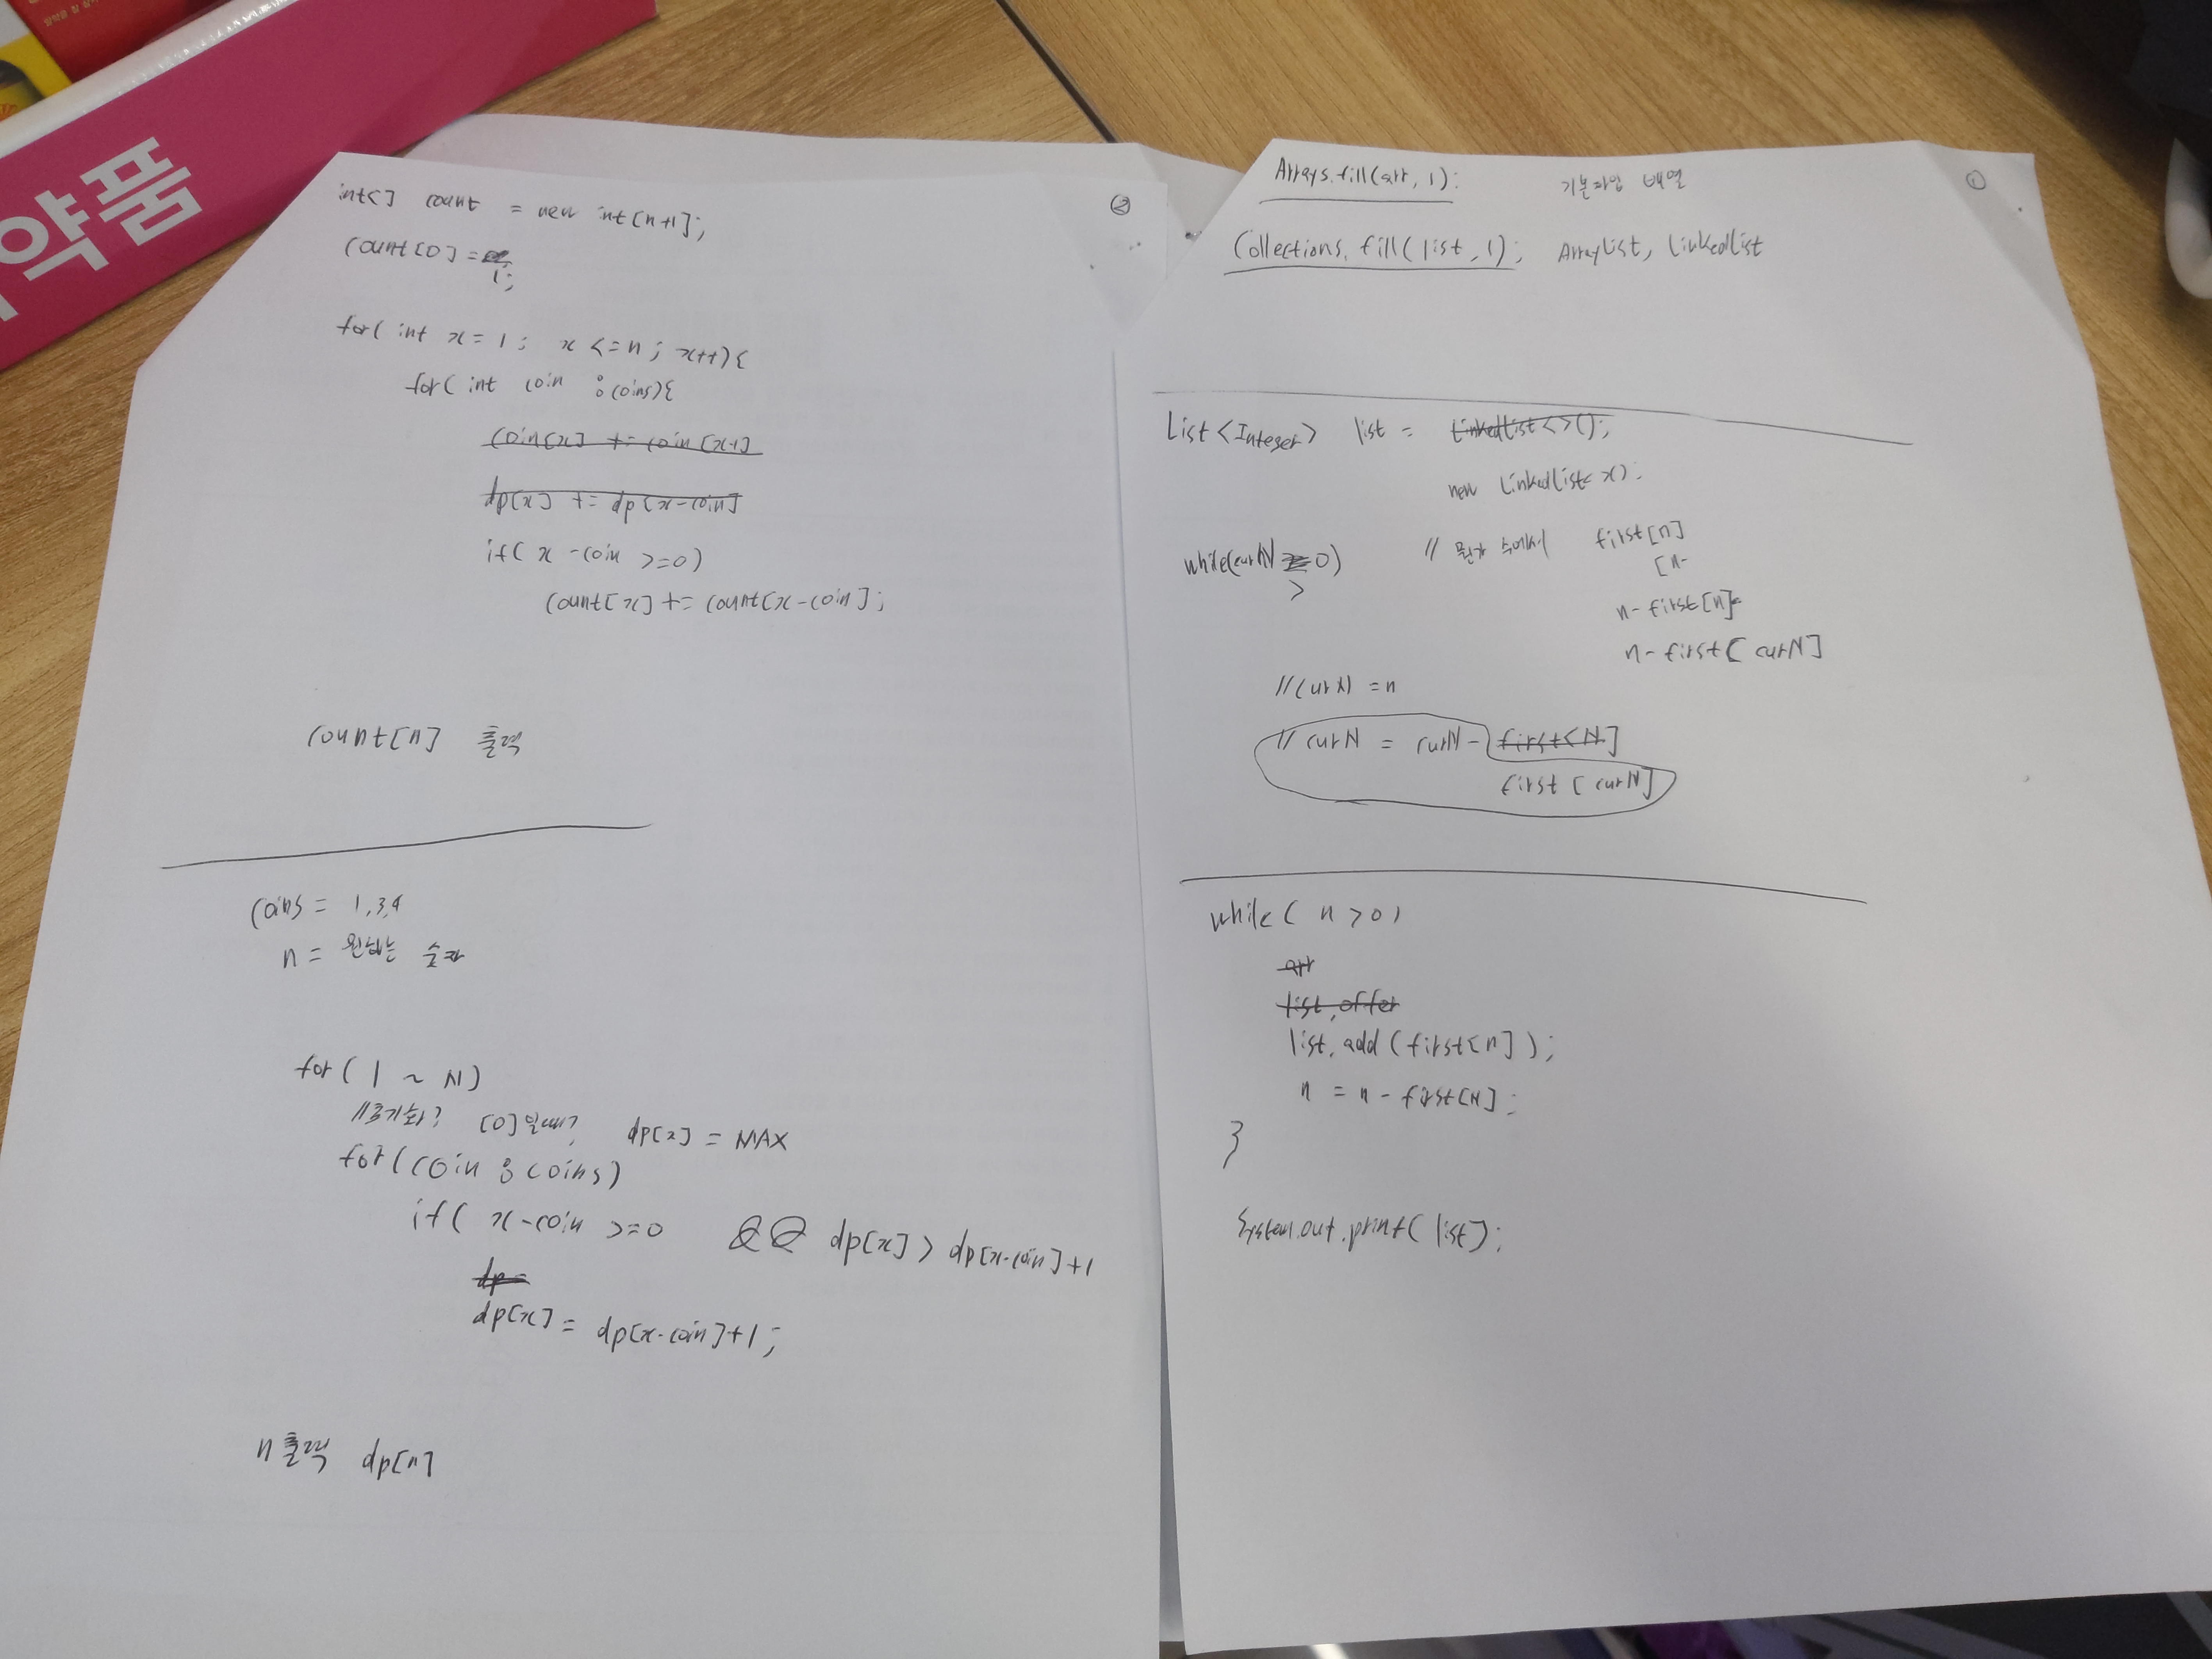 약품
②
int[] count = new int[n+1];
count[0] =
1;
for( int x = 1 ; x <= n ; x++){
for( int coin : coins){
coin[x] += coin[x-1]
dp[x] += dp[x-coin]
if( x - coin >= 0)
count[x] += count[x-coin];
count[n] 출력
coins = 1,3,4
n = 원하는 숫자
for( 1 ~ N)
//초기화? [0]일때? dp[x] = MAX
for(coin : coins)
if( x-coin >=0 && dp[x] > dp[x-coin]+1
dp=
dp[x] = dp[x-coin]+1;
n출력 dp[n]
①
Arrays.fill(arr, 1); 기본타입 배열
Collections.fill(list, 1); ArrayList, LinkedList
List<Integer> list = LinkedList<>();
new LinkedList<>();
while(curN 0) // 뭔가 수에서 first[n]
>
[n-
n-first[n]
n-first[curN]
//curN = n
// curN = curN - first[N]
first[curN]
while( n > 0)
arr
list.offer
list.add(first[n]);
n = n - first[N];
}
System.out.print(list);